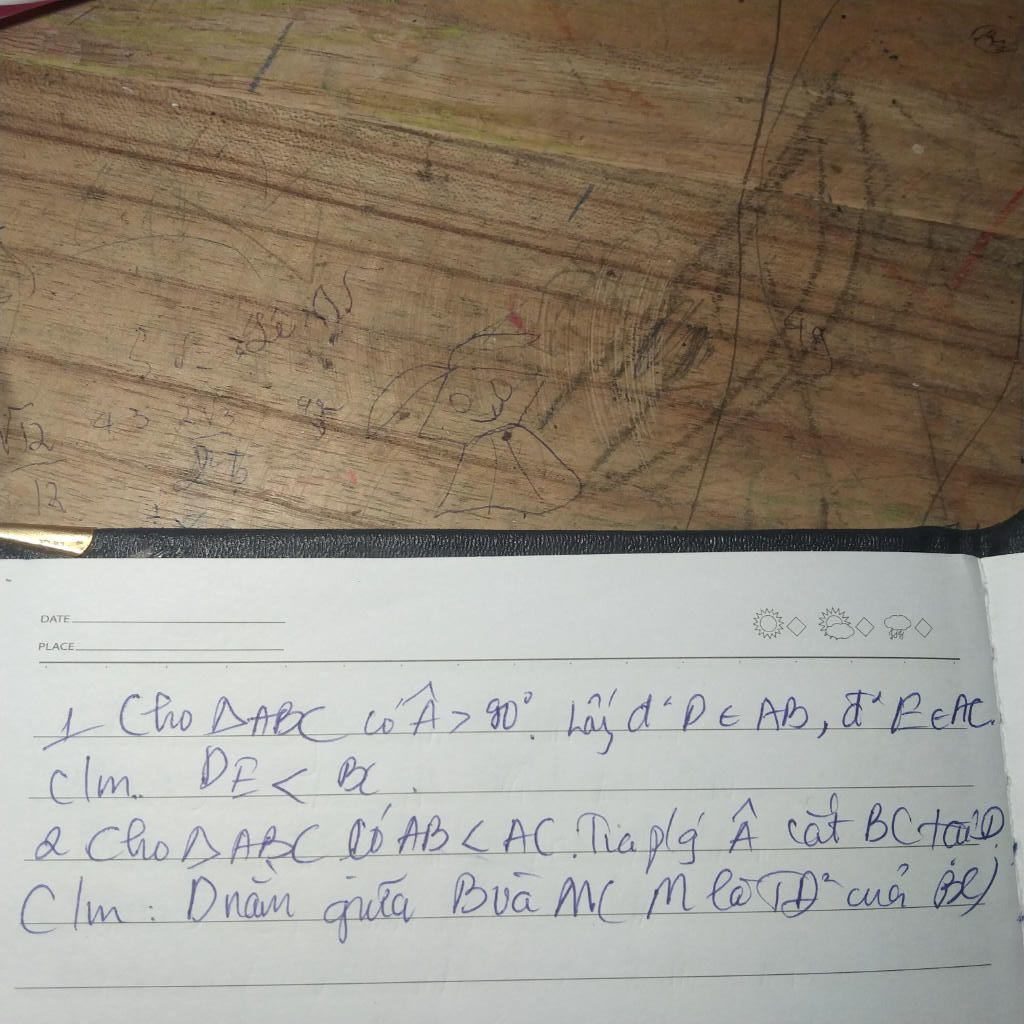 Lê
43
√12
12
DATE
PLACE
1 Cho △ABC có Â > 90°. Lấy đ² D ∈ AB, đ² E ∈ AC.
C/m.. DE < BC.
2 Cho △ABC có AB < AC. Tia p/g Â cắt BC tại D
C/m: D nằm giữa B và M ( M là TĐ² của BC)